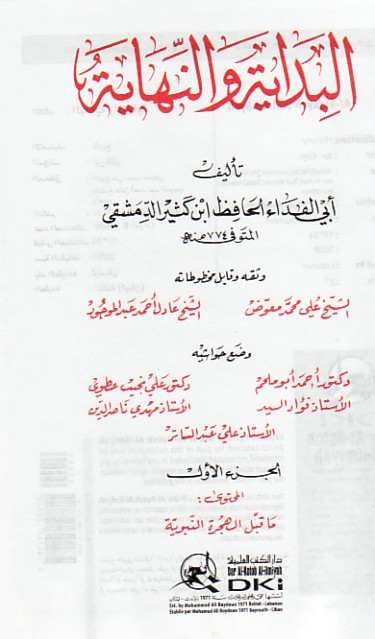 البداية والنهاية
تأليف
أبي الفداء الحافظ ابن كثير الدمشقي
المتوفى ٧٧٤ هـ
وثقه وقابل مخطوطاته
الشيخ علي محمد معوض الشيخ عادل أحمد عبد الموجود
وضع حواشيه
دكتور أحمد أبو ملحم دكتور علي نجيب عطوي
الأستاذ فؤاد السيد الأستاذ مهدي ناصر الدين
الأستاذ علي عبد الساتر
الجزء الأول
المحتوى:
ما قبل الهجرة النبوية
دار الكتب العلمية
Dar Al-Kotob Al-Ilmiyah
DKi
Est. by Mohamad Ali Baydoun 1971 Beirut - Lebanon
Établie par Mohamad Ali Baydoun 1971 Beyrouth - Liban